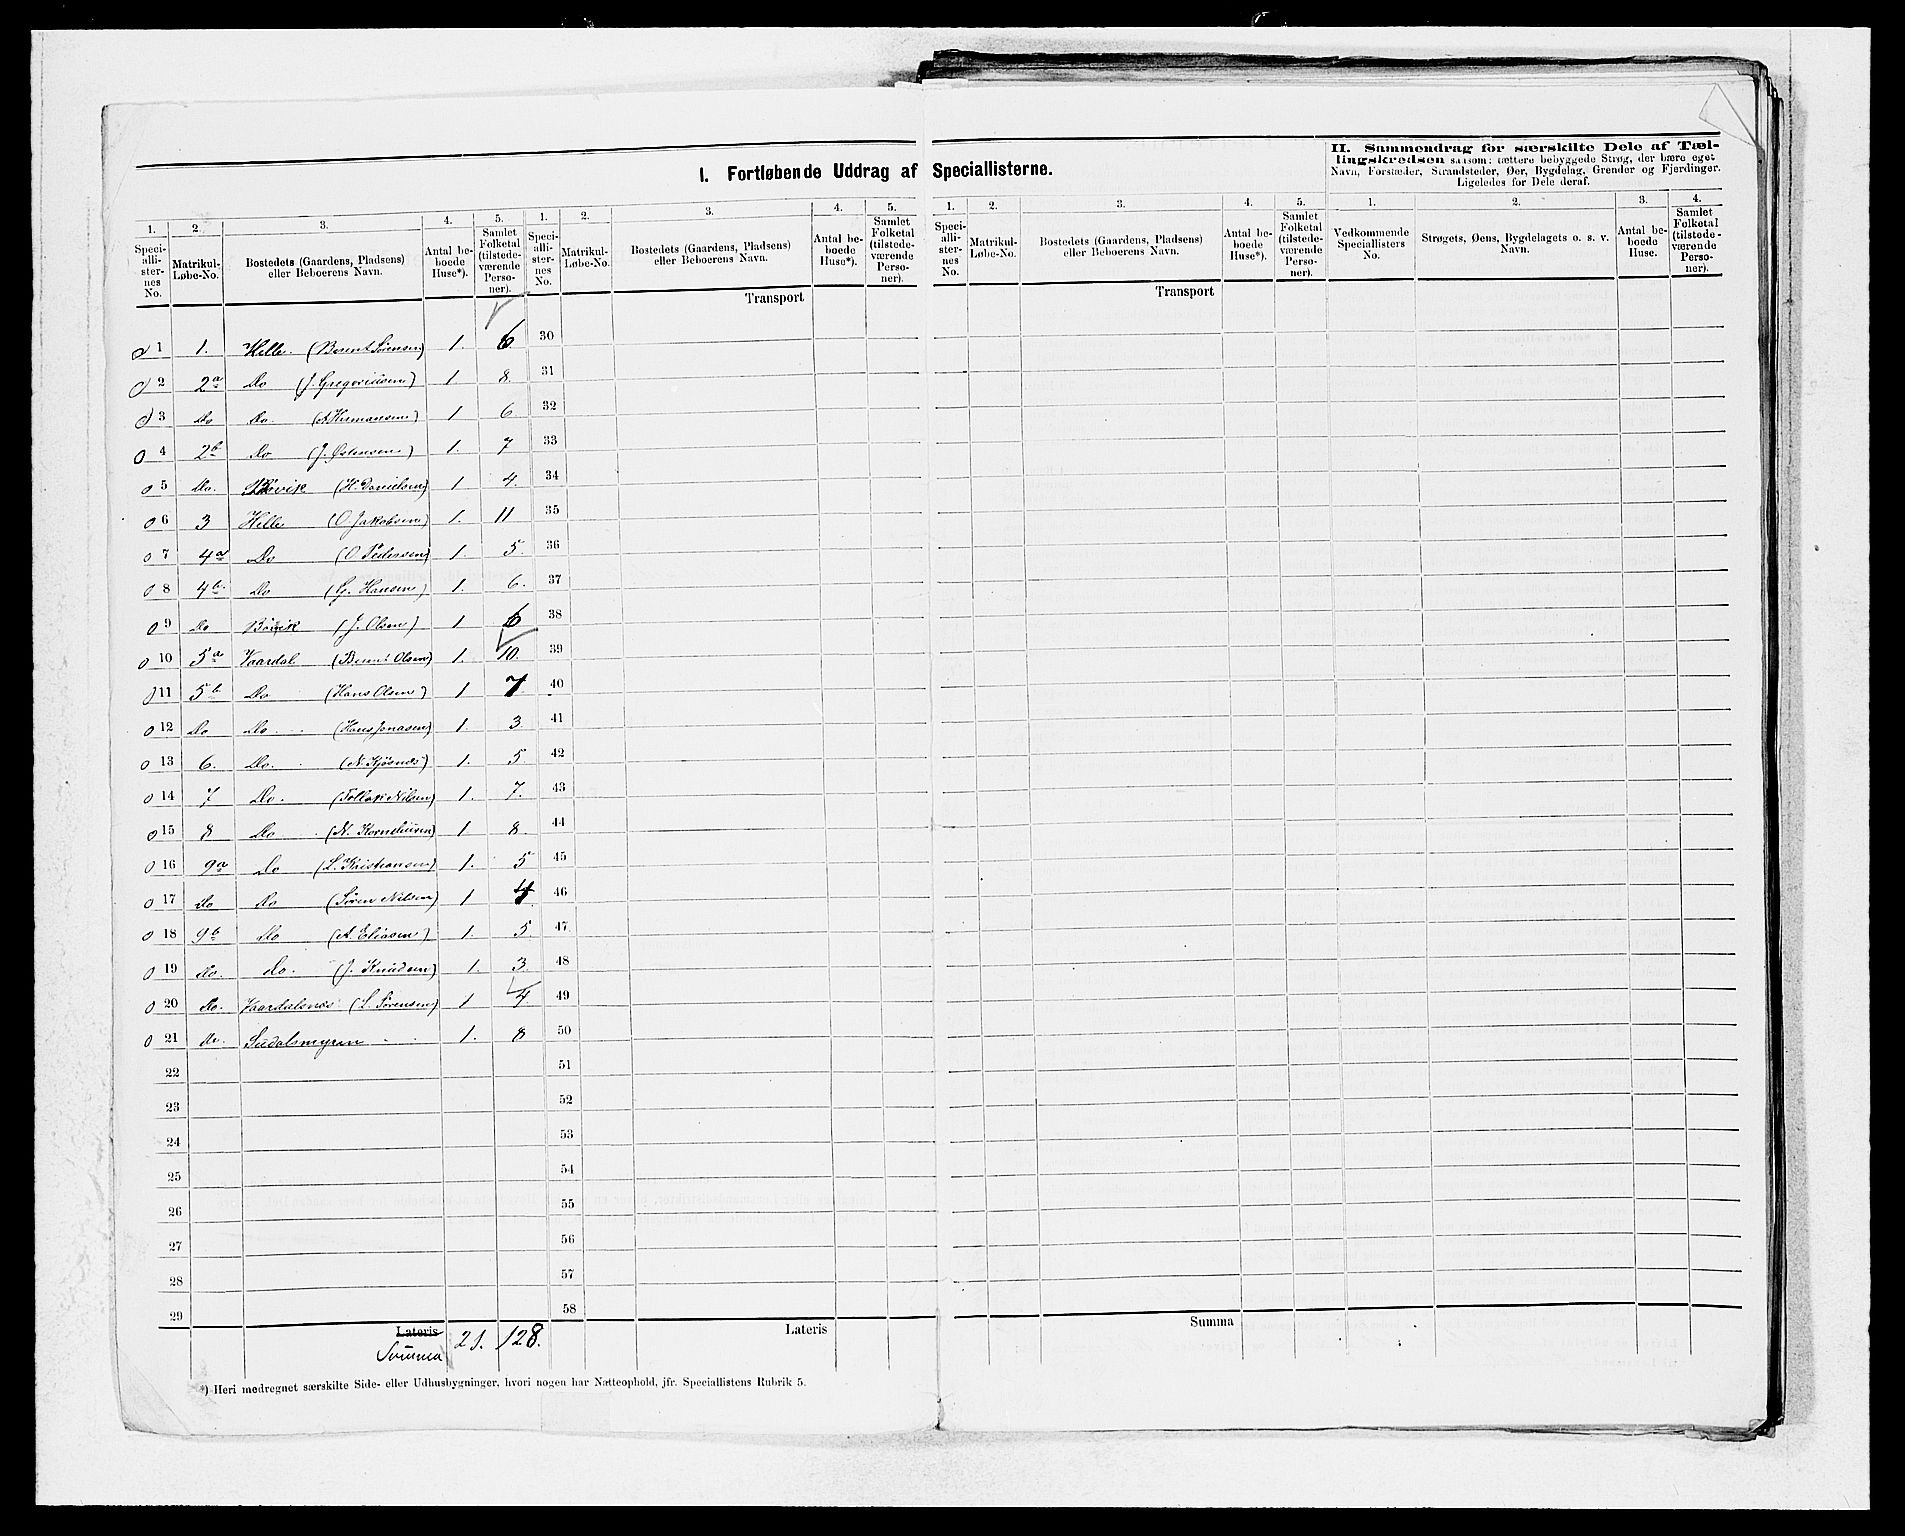 I. Fortløbende Uddrag af Speciallisterne.
II. Sammendrag for særskilte Dele af Tæl-
lingskredsen saasom: tættere bebyggede Strøg, der bære eget
Navn, Forstæder, Strandsteder, Øer, Bygdelag, Grender og Fjerdinger.
Ligeledes for Dele deraf.
1. 2. 3. 4. 5. 1. 2. 3. 4. 5. 1. 2. 3. 4. 5. 1. 2. 3. 4.
Speci-alli-ster-nes No. Matrikul-Løbe-No. Bostedets (Gaardens, Pladsens) eller Beboerens Navn. Antal be-boede Huse*). Samlet Folketal (tilstede-værende Perso-ner).
Speci-alli-ster-nes No. Matrikul-Løbe-No. Bostedets (Gaardens, Pladsens) eller Beboerens Navn. Antal be-boede Huse*). Samlet Folketal (tilstede-værende Perso-ner).
Speci-alli-ster-nes No. Matrikul-Løbe-No. Bostedets (Gaardens, Pladsens) eller Beboerens Navn. Antal be-boede Huse*). Samlet Folketal (tilstede-værende Perso-ner).
Vedkommende Speciallisters No. Strøgets, Øens, Bygdelagets o. s. v. Navn. Antal be-boede Huse. Samlet Folketal (tilstede-værende Perso-ner).
Transport Transport
1 1. Helle. (Berent Sørensen) 1. 6. 30
2 2a Do (J. Gregoriusen) 1 8. 31
3 Do Do. (A Hermansen) 1 6. 32
4 2b Do (J. Østensen) 1. 7 33
5 Do. (H. Danielsen) 1 4. 34
6 3 Helle (O Jakobsen) 1. 11 35
7 4a Do (O Pedersen) 1. 5. 36
8 4b. Do (G. Hansen) 1. 6. 37
9 Do Bøvik (J. Olsen) 1 6 38
10 5a Vaardal (Bernt Olsen) 1. 10. 39
11 5b Do (Hans Olsen) 1 7 40
12 Do Do. (Hans Jonasen) 1. 3 41
13 6. Do. (N. Kjøsnæs) 1. 5 42
14 7 Do. (Tollak Nilsen) 1. 7. 43
15 8 Do (N. Korneliusen) 1 8. 44
16 9a Do (L. Kristiansen) 1. 5 45
17 Do Do (Søren Nilsen) 1 4 46
18 9b Do (A. Eliasen) 1. 5. 47
19 Do. Do. (J. Knudsen) 1. 3. 48
20 Do. Vaardalsnæs (L. Sørensen) 1 4. 49
21 Do. Sudalsmyren 1. 8 50
22 51
23 52
24 53
25 54
26 55
27 56
28 57
29 58
Lateris Lateris Summa
Summa 21. 128.
*) Heri medregnet særskilte Side- eller Udhusbygninger, hvori nogen har Natteophold, jfr. Speciallistens Rubrik 5.